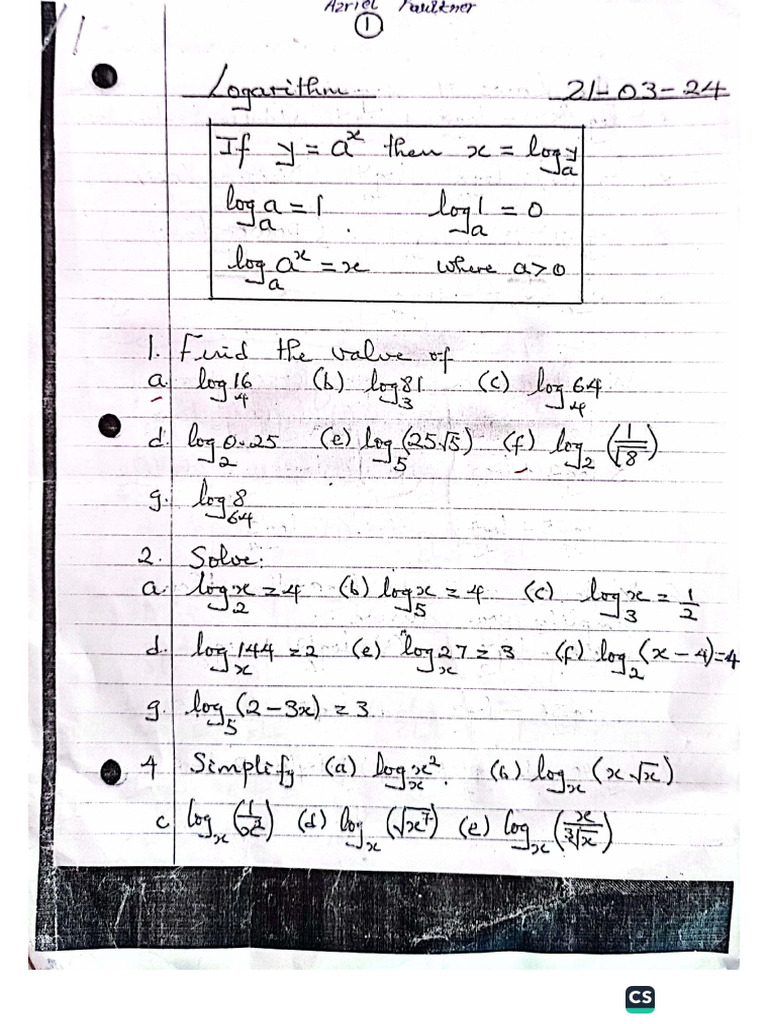 Azriel Faulkner
1
Logarithm 21-03-24
If y = aˣ then x = logₐy
logₐa = 1 logₐ1 = 0
logₐaˣ = x where a>0
1. Find the value of
a. log₄16 (b) log₃81 (c) log₄64
d. log₂0.25 (e) log₅(25√5) (f) log₂(1/√8)
g. log₆₄8
2. Solve:
a. log₂x = 4 (b) log₅x = 4 (c) log₃x = 1/2
d. logₓ144 = 2 (e) logₓ27 = 3 (f) log₂(x - 4) = 4
g. log₅(2 - 3x) = 3
4 Simplify (a) logₓx². (b) logₓ(x√x)
c logₓ(1/x³) (d) logₓ(√x⁷) (e) logₓ(x/³√x)
CS